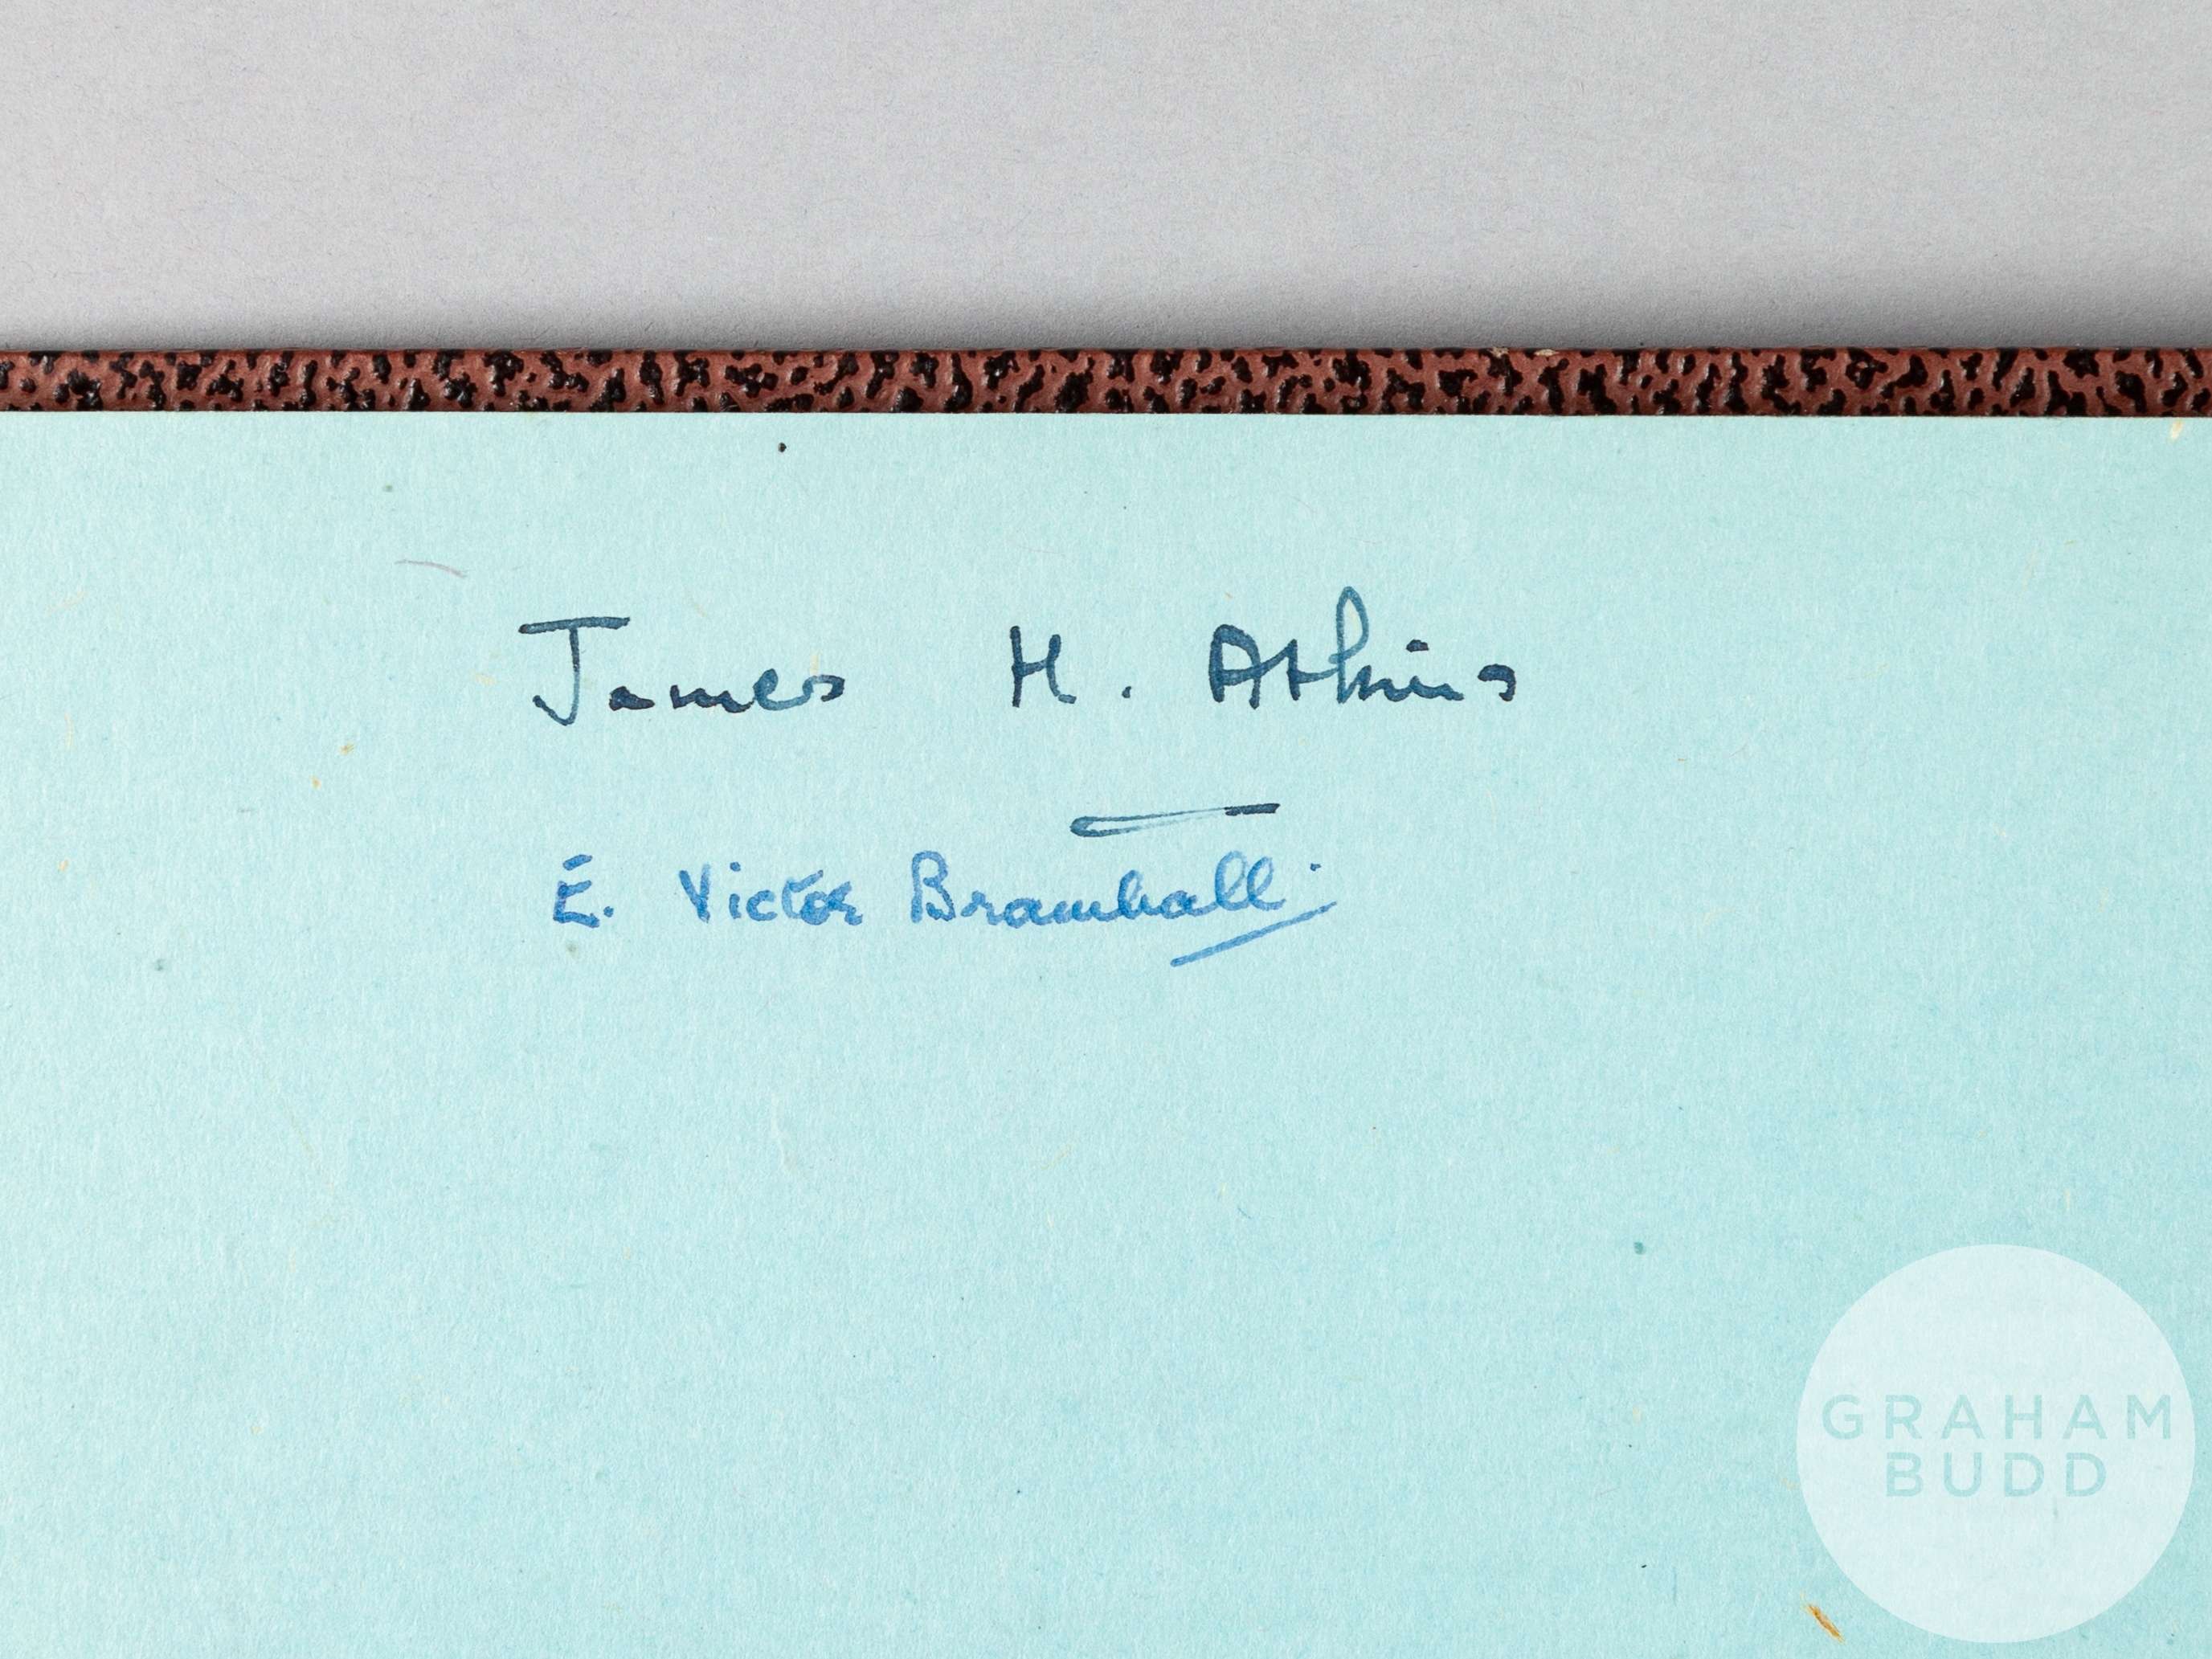 James H. Atkins
E. Victor Bramhall
GRAHAM
BUDD